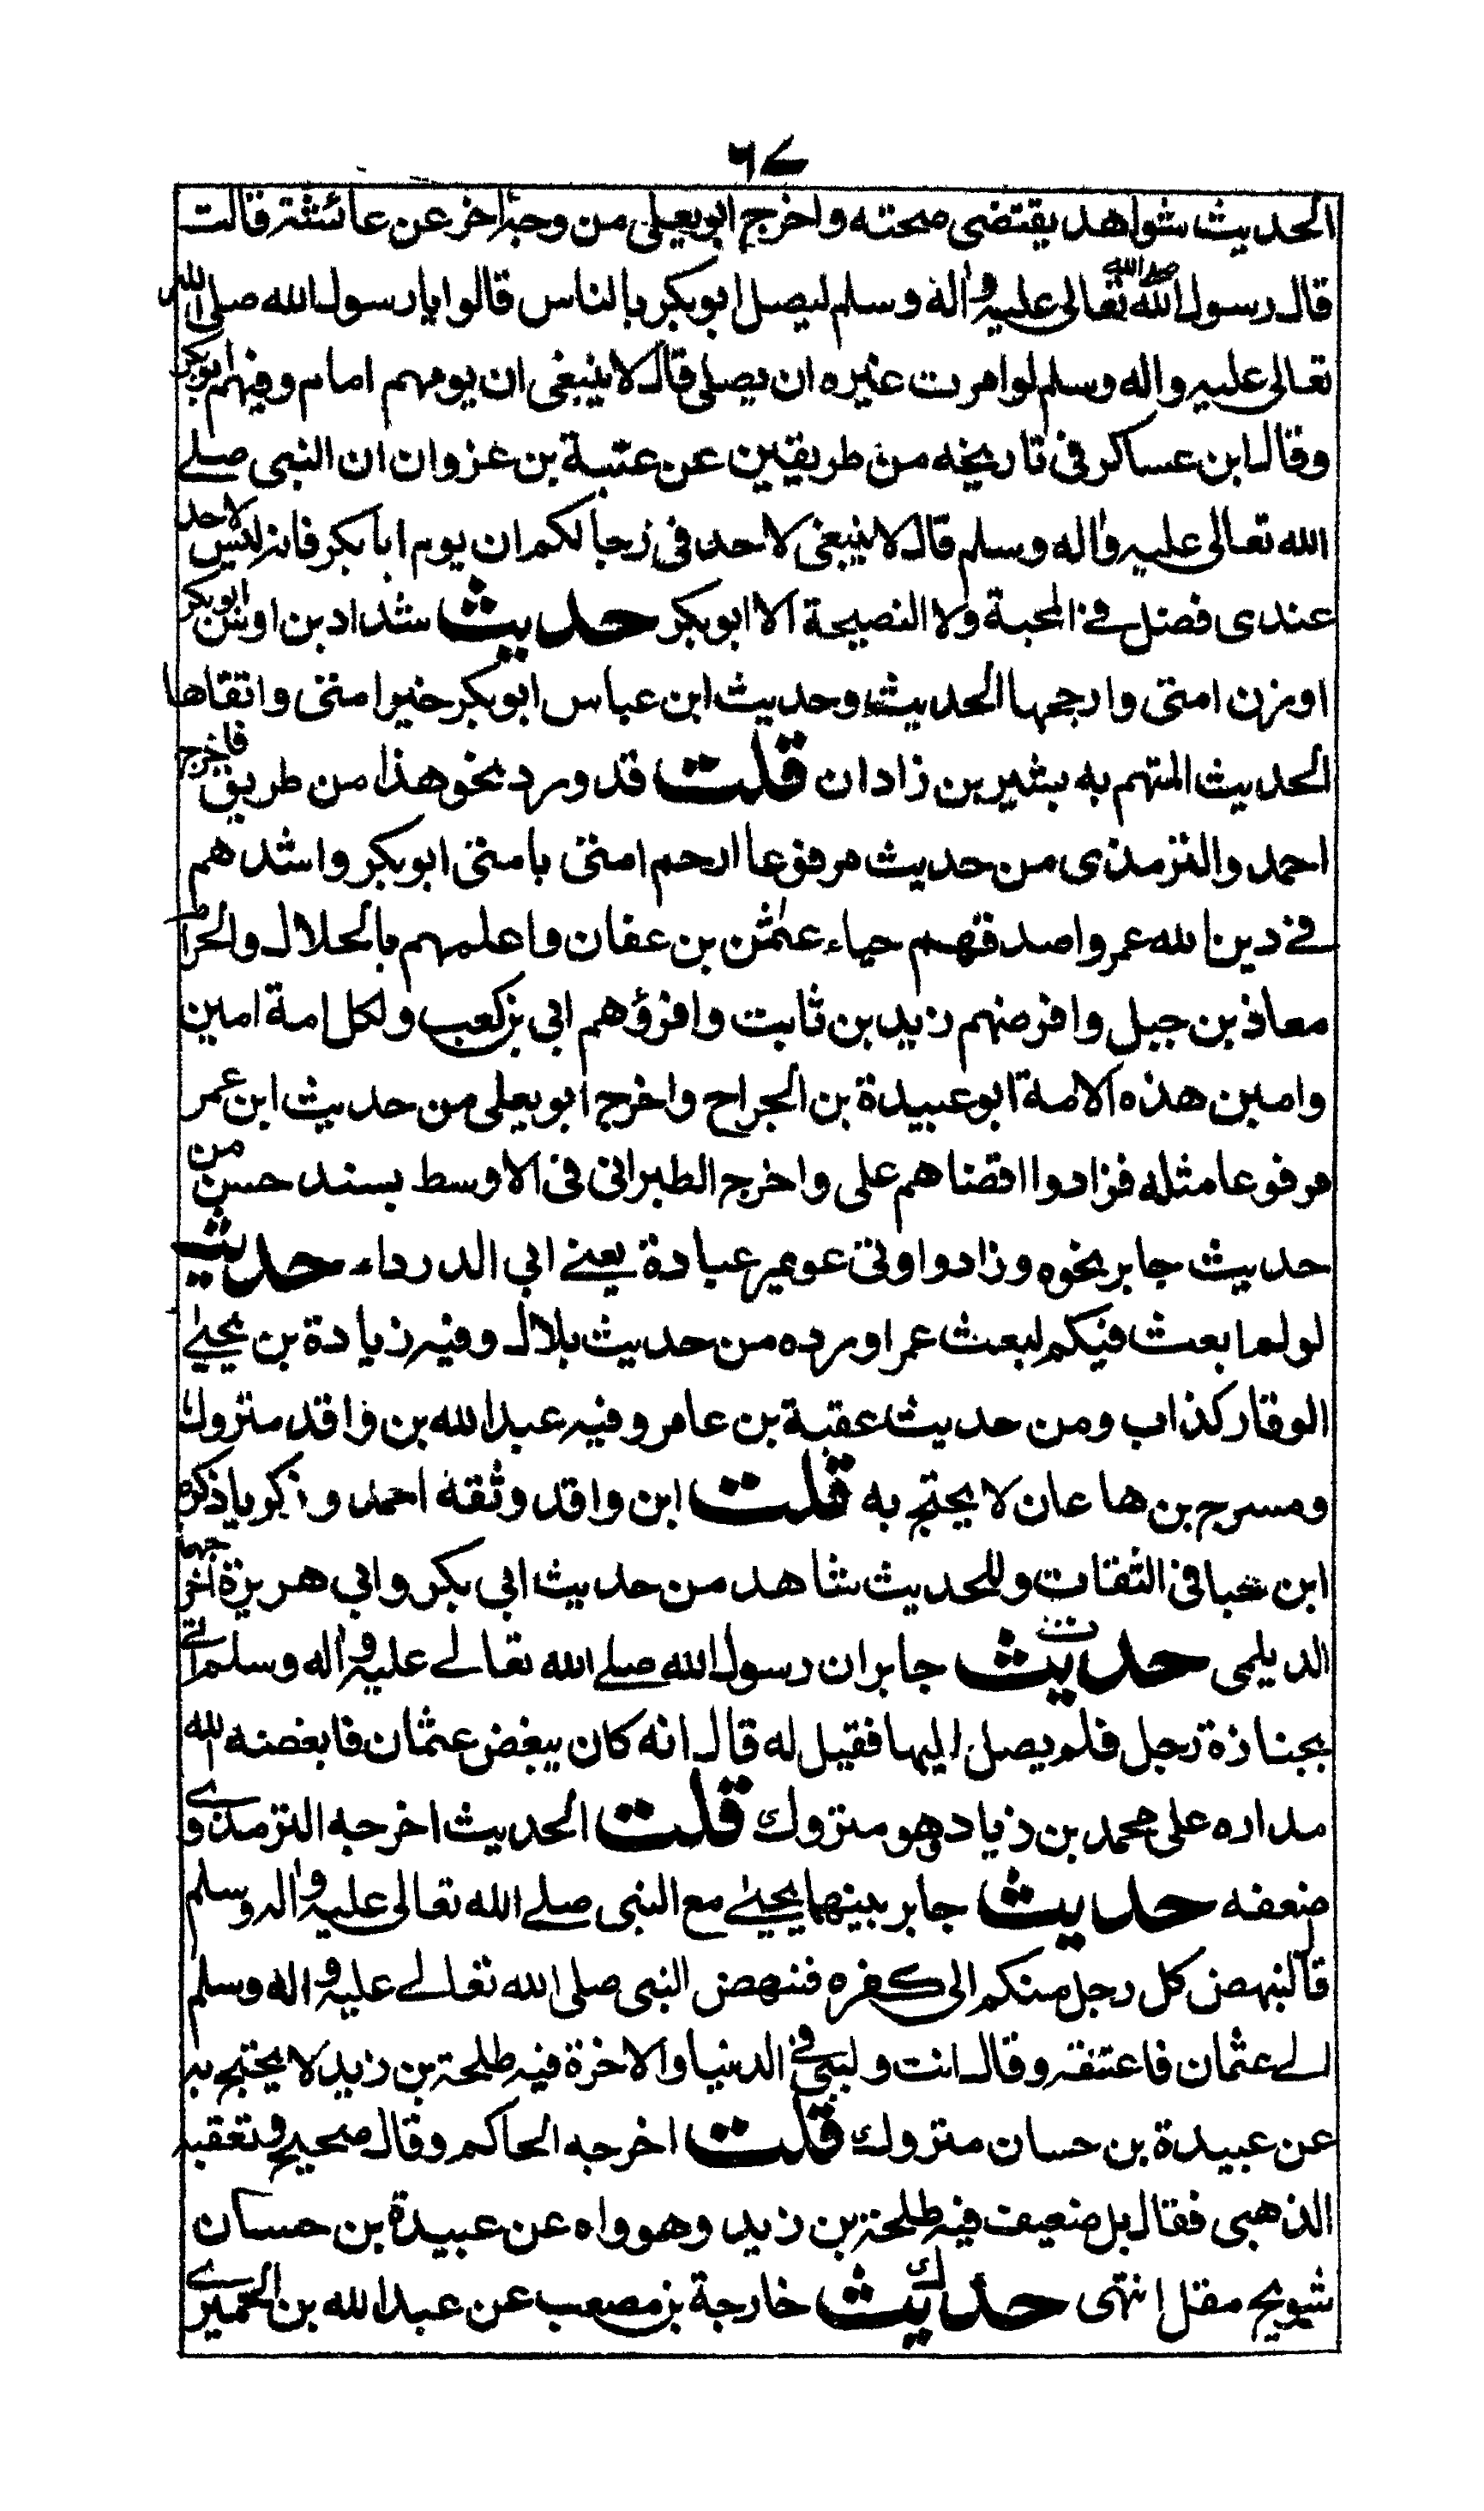 ٦٧
الحديث شواهد يقتضى صحته واخرج ابويعلى من وجه اخر عن عائشة قالت
قال رسول الله صلى الله تعالى عليه واله وسلم ليصل ابوبكر بالناس قالوا يا رسول الله صلى الله
تعالى عليه واله وسلم لو امرت غيره ان يصلى قال لا ينبغى ان يومهم امام وفيهم ابوبكر
وقال ابن عساكر فى تاريخه من طريقين عن عتبة بن غزوان ان النبى صلے
الله تعالى عليه واله وسلم قال لا ينبغى لاحد فى رجالكم ان يوم ابا بكر فانه ليس لاحد
عندى فضل فے المحبة ولا النصيحة الا ابوبكر حديث شداد بن اوس ابوبكر
اوزن امتى وارجحها الحديث وحديث ابن عباس ابوبكر خير امتى واتقاها
الحديث المتهم به بشير بن زادان قلت قد ورد نحو هذا من طريق فاخرج
احمد والترمذى من حديث مرفوعا ارحم امتى بامتى ابوبكر واشدهم
فے دين الله عمر واصدقهم حياء عثمٰن بن عفان واعلمهم بالحلال والحرام
معاذ بن جبل وافرضهم زيد بن ثابت واقرؤهم ابى بن كعب ولكل امة امين
وامين هذه الامة ابو عبيدة بن الجراح واخرج ابو يعلى من حديث ابن عمر
مرفوعا مثله فزادوا اقضاهم على واخرج الطبرانى فى الاوسط بسند حسن من
حديث جابر نحوه وزادوا اوتى عويمر عبادة يعنے ابى الدرداء حديث
لو لم ابعث فيكم لبعث عمر اورده من حديث بلال وفيه زيادة بن يحيٰے
الوقار كذاب ومن حديث عقبة بن عامر وفيه عبد الله بن واقد متروك
ومسرح بن هاعان لا يحتج به قلت ابن واقد وثقه احمد وزكريا ذكره
ابن حبا فى الثقات وللحديث شاهد من حديث ابى بكر وابى هريرة اخرجهما
الديلمى حديث جابر ان رسول الله صلے الله تعالے عليه واله وسلم اتے
بجنازة رجل فلم يصل اليها فقيل له قال انه كان يبغض عثمان فابغضه الله
مداره على محمد بن زياد وهو متروك قلت الحديث اخرجه الترمذى و
ضعفه حديث جابر بينهما يحيٰے مع النبى صلے الله تعالى عليه واله وسلم
قال لينهض كل رجل منكم الى كفره فنهض النبى صلى الله تعالے عليه واله وسلم
الے عثمان فاعتنقه وقال انت وليى فے الدنيا والاخرة فيه طلحة بن زيد لا يحتج به
عن عبيدة بن حسان متروك قلت اخرجه الحاكم وقال صحيح وتعقبه
الذهبى فقال بل ضعيف فيه طلحة بن زيد وهو واه عن عبيدة بن حسان
شويخ مقل انتهى حديث خارجة بن مصعب عن عبد الله بن الحميرے